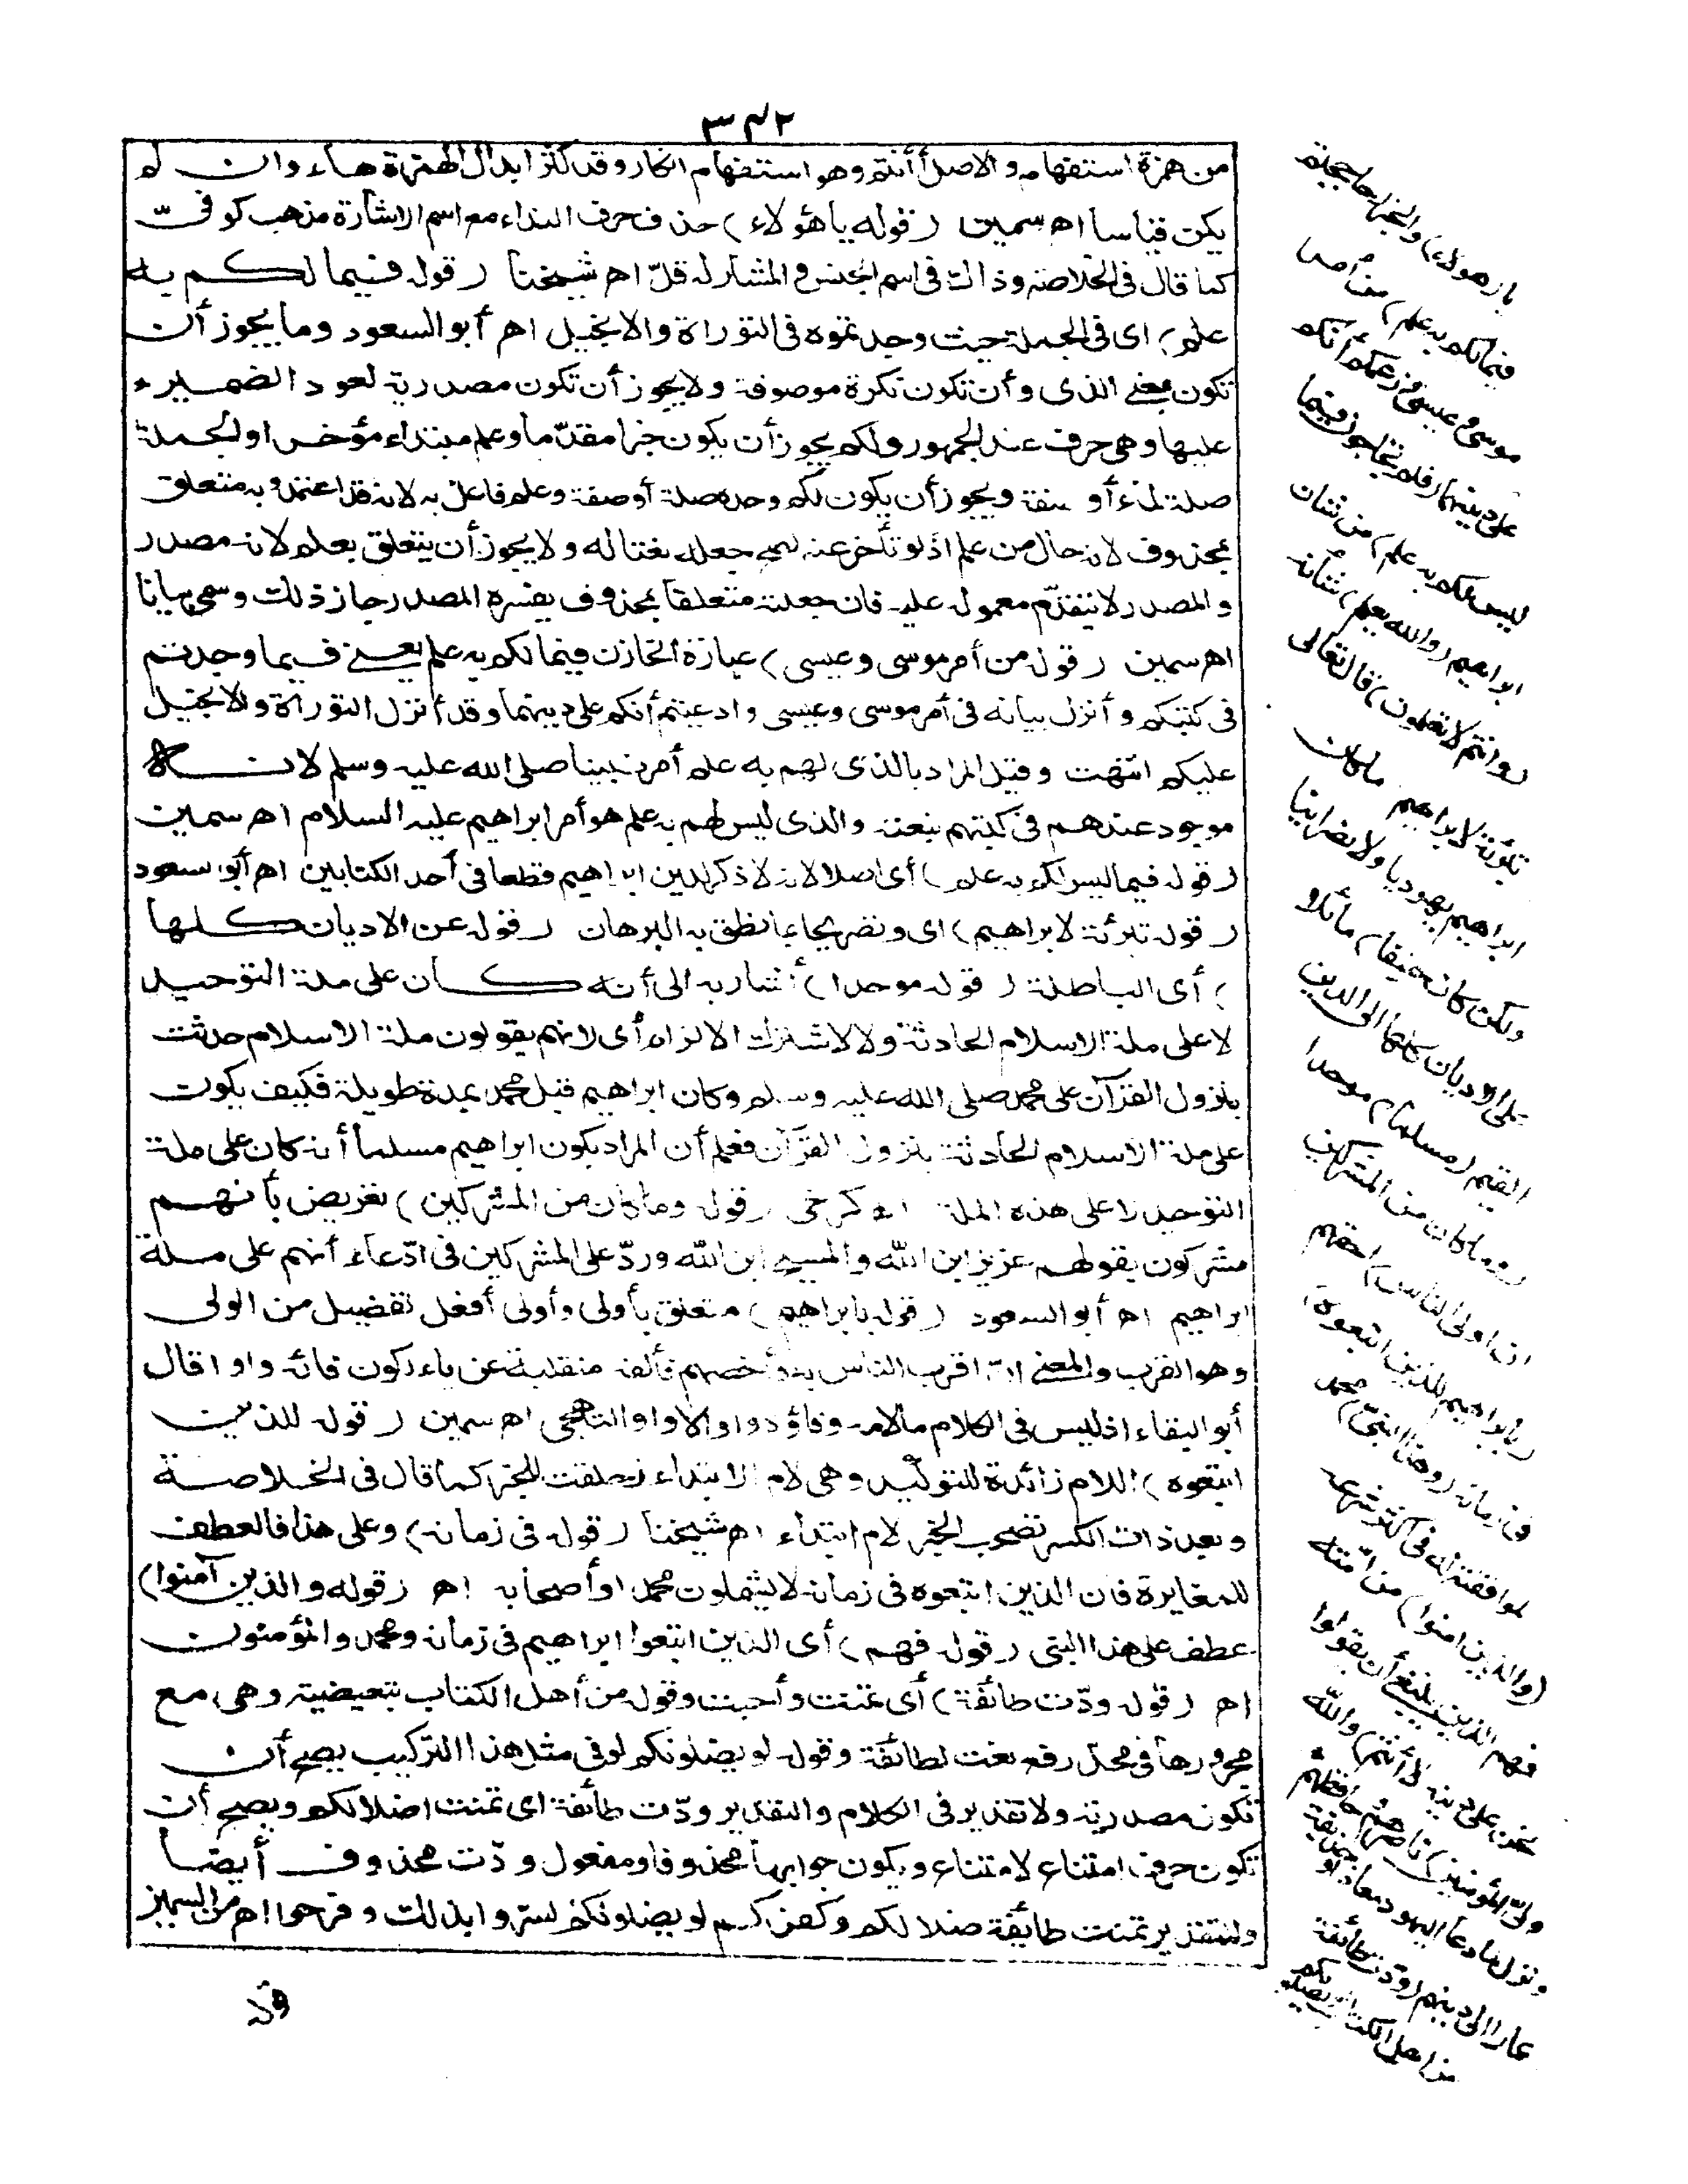 ٣٤٢
من همزة استفهام والاصل أأنتم وهو استفهام انكار وقد كثر ابدال الهمزة هاء وان لم
يكن قياسا اه سمين (قوله يا هؤلاء) حذف حرف النداء مع اسم الاشارة مذهب كوفىّ
كما قال فى الخلاصة وذاك فى اسم الجنس والمشار له قلّ اه شيخنا (قوله فيما لكم به
علم) اى فى الجملة حيث وجدتموه فى التوراة والانجيل اه أبو السعود وما يجوز أن
تكون بمعنى الذى وأن تكون نكرة موصوفة ولا يجوز أن تكون مصدرية لعود الضمير
عليها وهى حرف عند الجمهور ولكم يجوز أن يكون خبرا مقدّما وعلم مبتداء مؤخرا والجملة
صلة لما أو صفة ويجوز أن يكون لكم وحده صلة أو صفة وعلم فاعل به لانه قد اعتمد وبه متعلق
بمحذوف لانه حال من علم اذ لو تأخر عنه لصح جعله نعتا له ولا يجوز أن يتعلق بعلم لانه مصدر
والمصدر لا يتقدّم معموله عليه فان جعلته متعلقا بمحذوف يفسره المصدر جاز ذلك وسمى بيانا
اه سمين (قوله من أمر موسى وعيسى) عبارة الخازن فيما لكم به علم يعنى فيما وجدتم
فى كتبكم وأنزل بيانه فى أمر موسى وعيسى وادعيتم أنكم على دينهما وقد أنزل التوراة والانجيل
عليكم انتهت وقيل المراد بالذى لهم به علم أمر نبينا صلى الله عليه وسلم لانه
موجود عندهم فى كتبهم بنعته والذى ليس لهم به علم هو أمر ابراهيم عليه السلام اه سمين
(قوله فيما ليس لكم به علم) أى اصلا لانه لا ذكر لدين ابراهيم قطعا فى أحد الكتابين اه أبو سعود
(قوله تبرئة لابراهيم) اى وتصريحا بما نطق به البرهان (قوله عن الاديان كلها
) أى الباطلة (قوله موحدا) أشار به الى أنه كان على ملة التوحيد
لا على ملة الاسلام الحادثة والا لاشترك الالزام أى لانهم يقولون ملة الاسلام حدثت
بنزول القرآن على محمد صلى الله عليه وسلم وكان ابراهيم قبل محمد بمدة طويلة فكيف يكون
على ملة الاسلام الحادثة بنزول القرآن فعلم أن المراد بكون ابراهيم مسلما أنه كان على ملة
التوحيد لا على هذه الملة اه كرخى (قوله وما كان من المشركين) تعريض بأنهم
مشركون بقولهم عزير ابن الله والمسيح ابن الله وردّ على المشركين فى ادّعاء أنهم على ملة
ابراهيم اه أبو السعود (قوله بابراهيم) متعلق بأولى وأولى أفعل تفضيل من الولى
وهو القرب والمعنى انّ اقرب الناس به وأخصهم فألفه منقلبة عن ياء لكون فائه واوا قال
أبو البقاء اذ ليس فى الكلام ما لامه وفاؤه واو الا واو التهجى اه سمين (قوله للذين
اتبعوه) اللام زائدة للتوكيد وهى لام الابتداء زحلقت للخبر كما قال فى الخلاصة
وبعد ذات الكسر تصحب الخبر لام ابتداء اه شيخنا (قوله فى زمانه) وعلى هذا فالعطف
للمغايرة فان الذين اتبعوه فى زمانه لا يشملون محمدا وأصحابه اه (قوله والذين آمنوا)
عطف على هذا النبى (قوله فهم) أى الذين اتبعوا ابراهيم فى زمانه ومحمد والمؤمنون
اه (قوله ودّت طائفة) أى تمنت وأحبت وقوله من أهل الكتاب تبعيضية وهى مع
مجرورها فى محل رفع نعت لطائفة وقوله لو يضلونكم لو فى مثل هذا التركيب يصح أن
تكون مصدرية ولا تقدير فى الكلام والتقدير ودّت طائفة اى تمنت اضلالكم ويصح أن
تكون حرف امتناع لامتناع ويكون جوابها محذوفا ومفعول ودّت محذوف أيضا
والتقدير تمنت طائفة ضلالكم وكفركم لو يضلونكم لسروا بذلك وفرحوا اه من السمين
يا (هؤلاء) والخبر حاججتم
فيما لكم به علم) من أمر
موسى وعيسى وزعمكم أنكم
على دينهما (فلم تحاجون فيما
ليس لكم به علم) من شان
ابراهيم (والله يعلم) شأنه
(وانتم لا تعلمون) قال تعالى
تبرئة لابراهيم ما كان
ابراهيم يهوديا ولا نصرانيا
ولكن كان حنيفا) مائلا
عن الاديان كلها الى الدين
القيم (مسلما) موحدا
(وما كان من المشركين
ان اولى الناس) احقهم
(بابراهيم للذين اتبعوه)
فى زمانه (وهذا النبىّ) محمد
لموافقته له فى اكثر شرعه
(والذين امنوا) من امّته
فهم الذين ينبغى أن يقولوا
نحن على دينه لا أنتم (والله
ولىّ المؤمنين) ناصرهم وحافظهم
ونزل لما دعا اليهود معاذا وحذيفة
وعمارا الى دينهم (ودّت طائفة
من اهل الكتاب لو يضلونكم